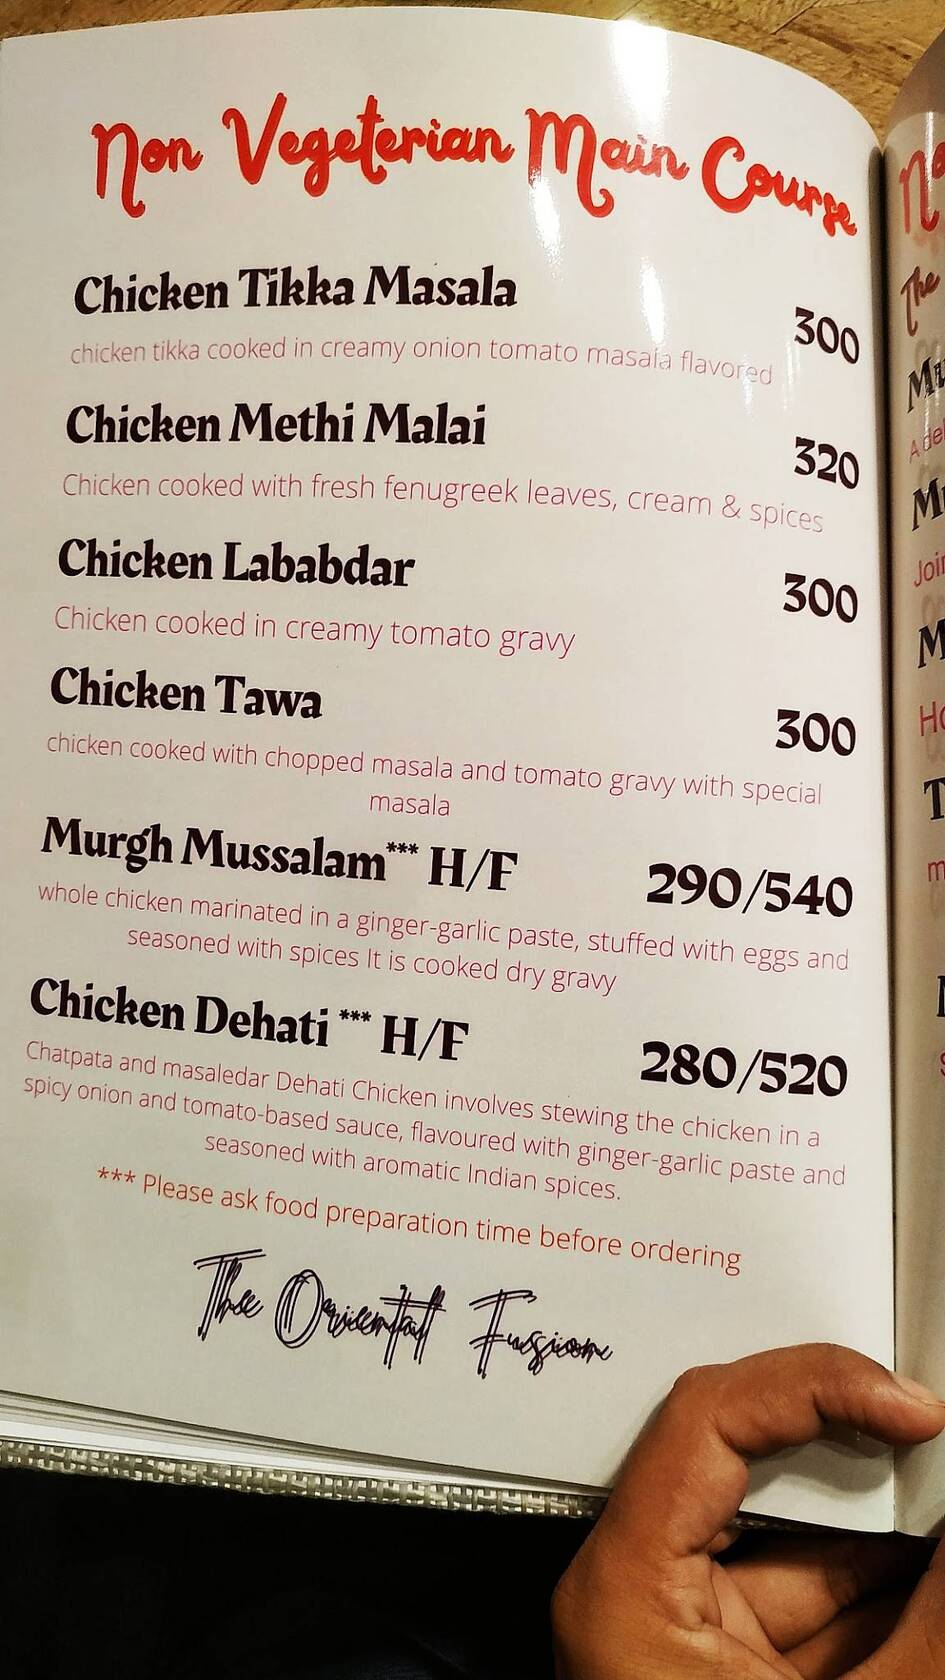 Non Vegeterian Main Course
Chicken Tikka Masala
300
chicken tikka cooked in creamy onion tomato masala flavored
Chicken Methi Malai
320
Chicken cooked with fresh fenugreek leaves, cream & spices
Chicken Lababdar
300
Chicken cooked in creamy tomato gravy
Chicken Tawa
300
chicken cooked with chopped masala and tomato gravy with special
masala
Murgh Mussalam*** H/F 290/540
whole chicken marinated in a ginger-garlic paste, stuffed with eggs and
seasoned with spices It is cooked dry gravy
Chicken Dehati *** H/F 280/520
Chatpata and masaledar Dehati Chicken involves stewing the chicken in a
spicy onion and tomato-based sauce, flavoured with ginger-garlic paste and
seasoned with aromatic Indian spices.
*** Please ask food preparation time before ordering
The Oriental Fusion
The